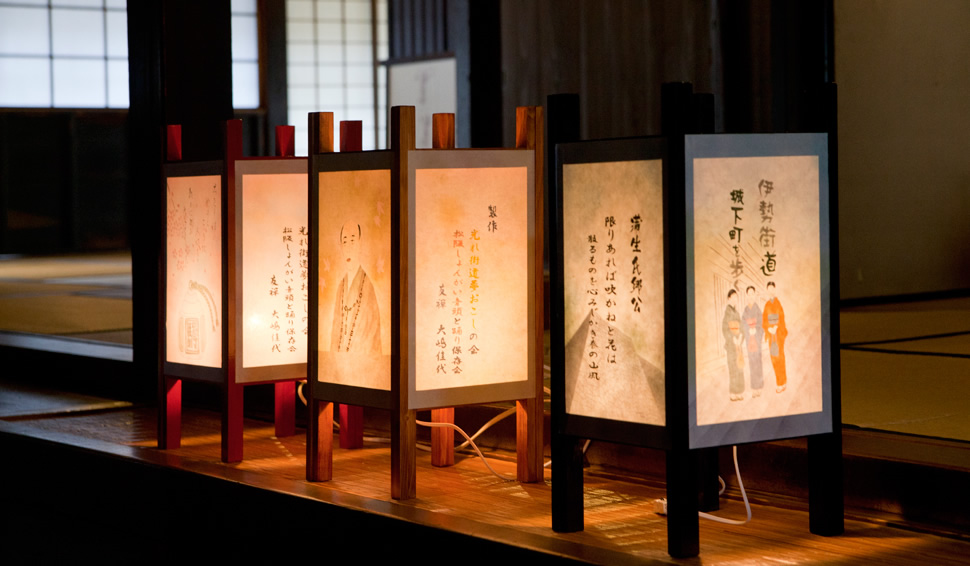 光れ街道夢おこしの会
松阪しょんがい音頭と踊り保存会
友禅 大嶋佳代
製作
光れ街道夢おこしの会
松阪しょんがい音頭と踊り保存会
友禅 大嶋佳代
蒲生氏郷公
限りあれば吹かねと花は
散るものを心みじかき春の山風
伊勢街道
城下町を歩く